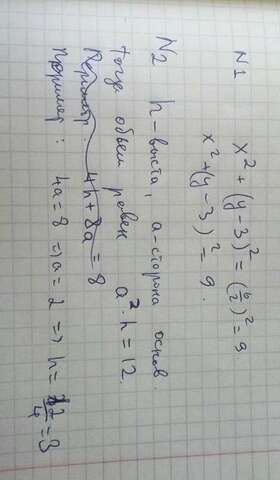 N1
x² + (y-3)² = (6/2)² = 9
x² + (y-3)² = 9.
N2 h-выста, a-сторона основ.
Тогда объем равен a²·h = 12.
Периметр 4h + 8a = 8
Пример: 4a = 8 => a = 2 => h = 12/4 = 3